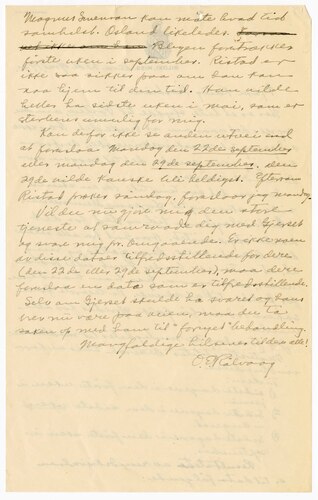 Magnus Swenson kan møte hvad tid
somhelst. Osland likeledes.
Blegen foretrækker
første uken i september. Ristad er
ikke saa sikker paa om han kan
naa hjem til den tid. Han vilde
helst ha sidste uken i mai, som er
umulig for mig.
Kan derfor ikke se anden utvei end
at foreslaa Mandag den 22de september
eller mandag den 29de september, den
29de vilde kanske bli heldigst. Eftersom
Ristad præker søndag, foreslaar jeg mandag.
Vil du nu gjøre mig den store
tjeneste at samraade dig med Gjerset
og svare mig pr. omgaaende. Er ikke noen
av disse datoer tilfredsstillende for dere
(den 22de eller 29de september), maa dere
foreslaa en dato som er tilfredsstillende.
Selv om Gjerset skulde ha svaret og hans
brev nu være paa veien, maa du ta
saken op med ham til "fornyet" behandling.
Mangfoldige hilsener til dere alle!